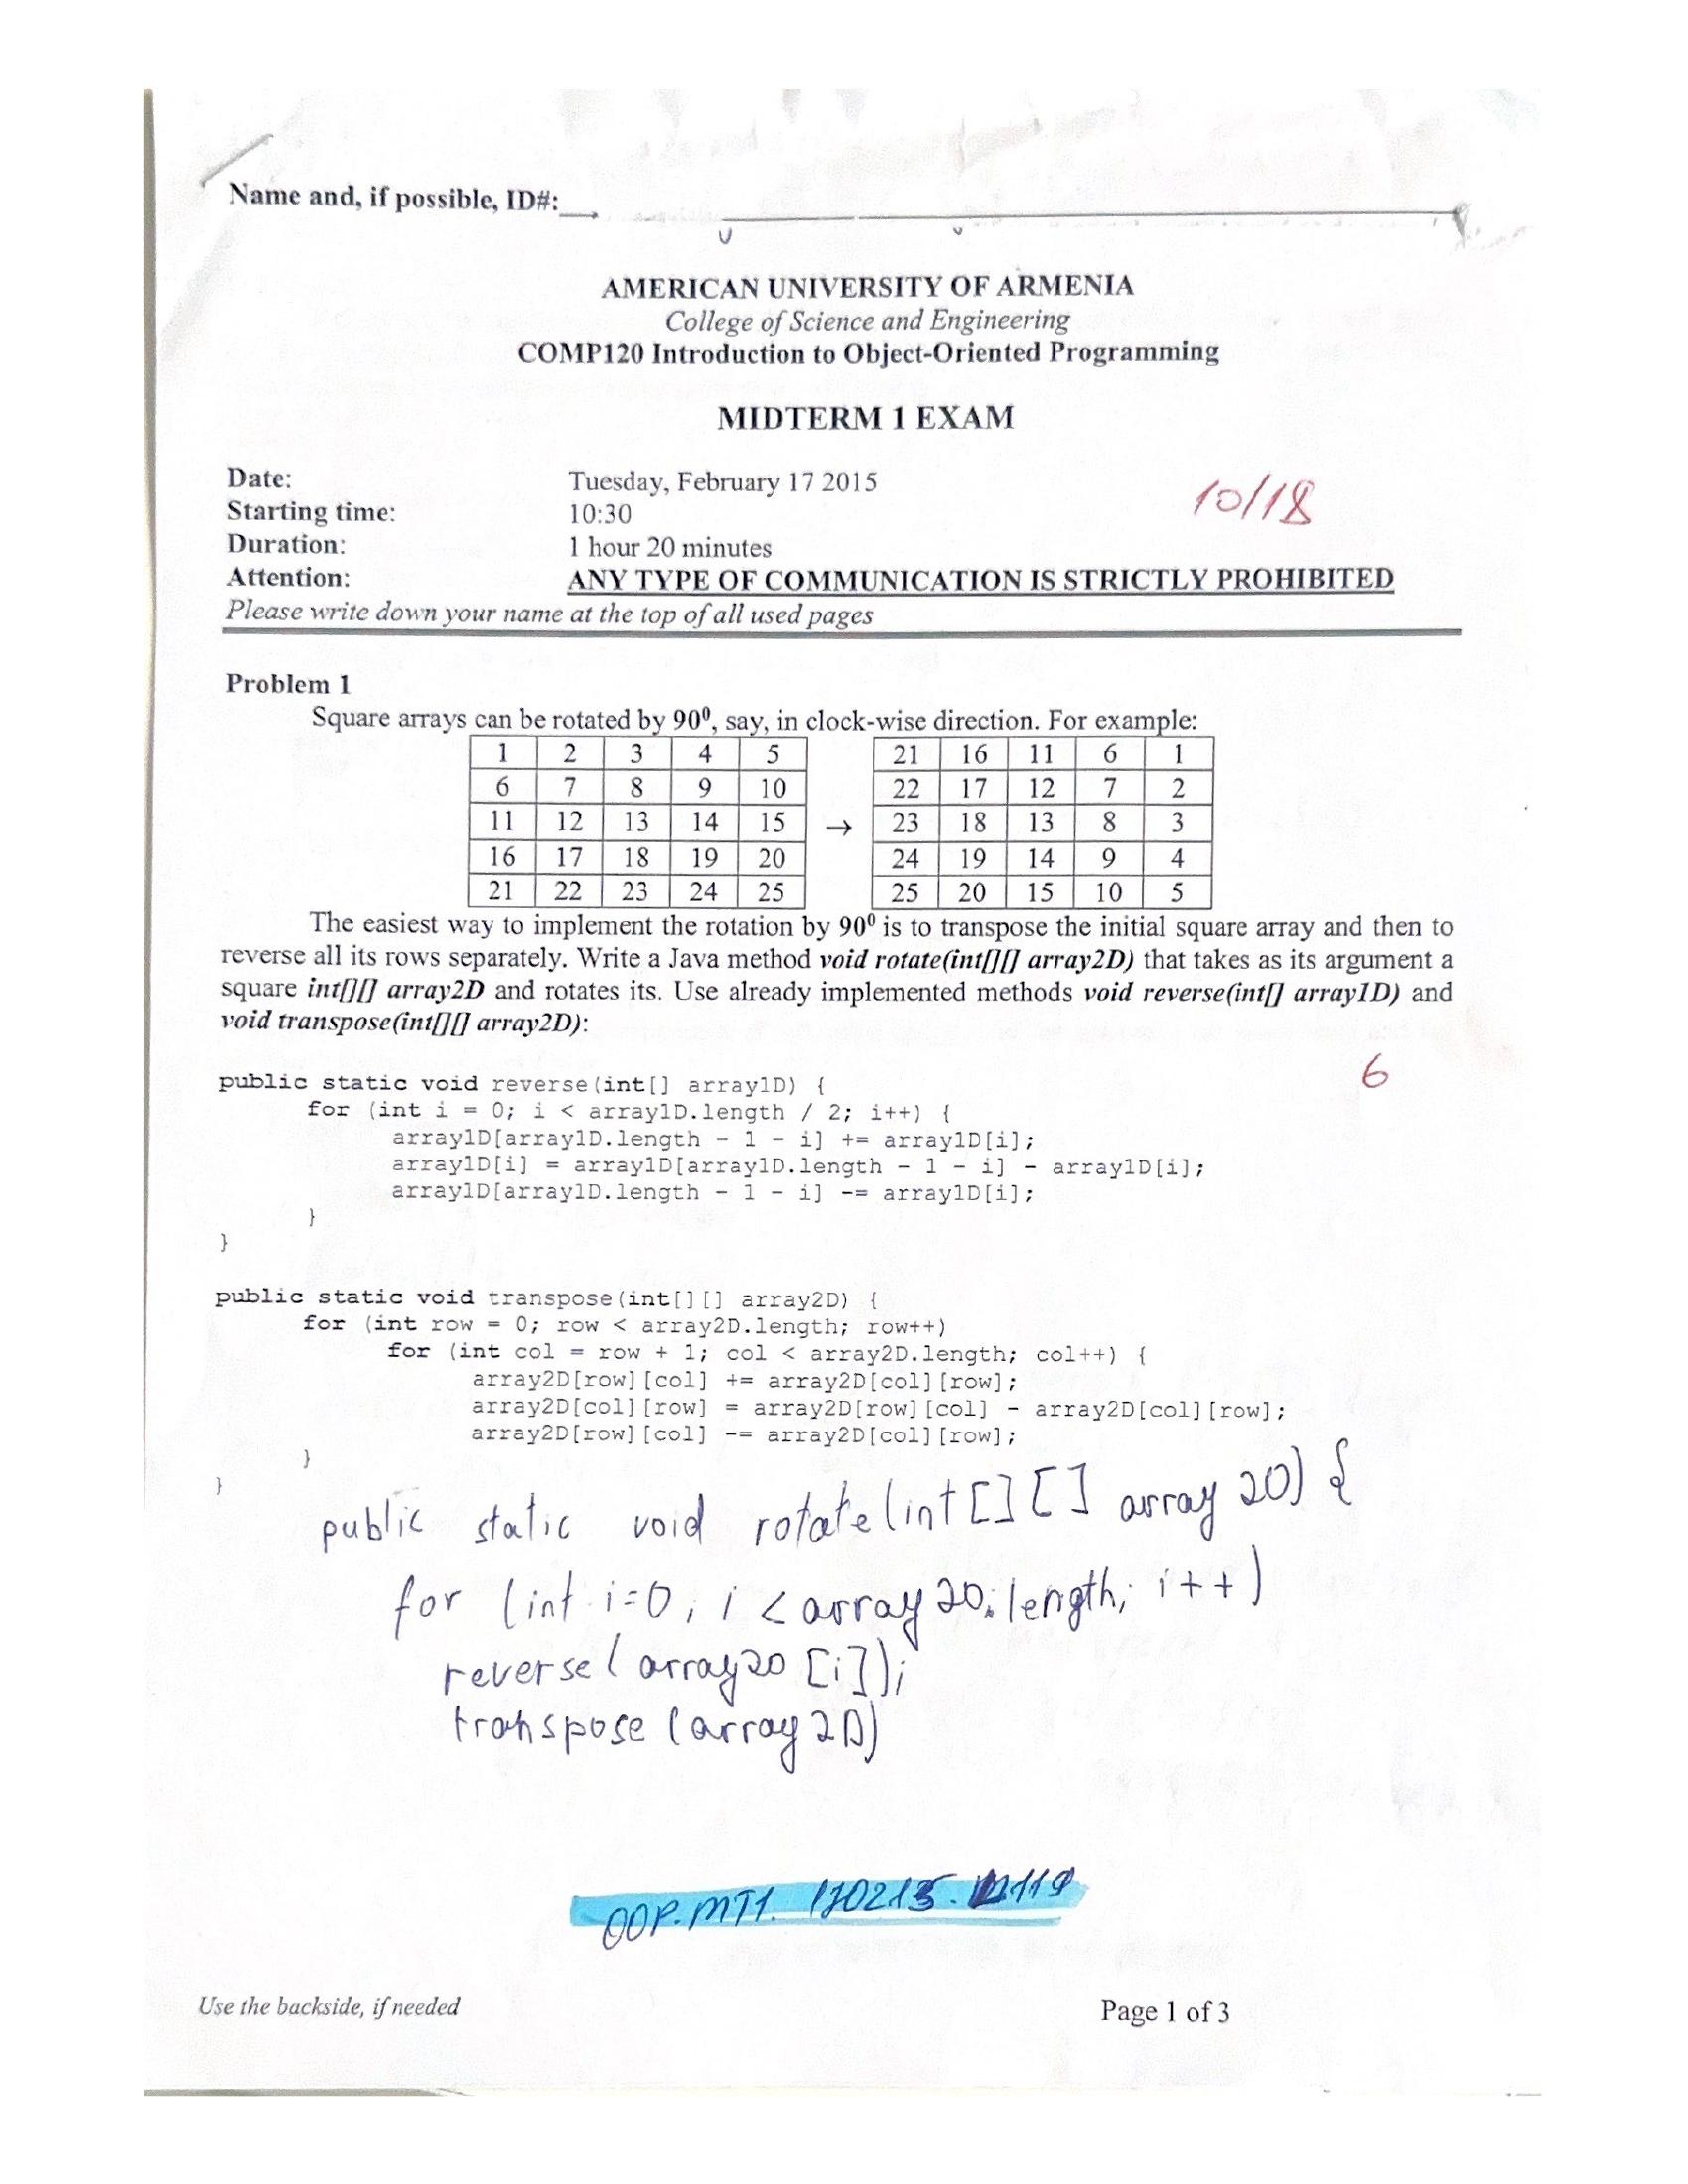 Name and, if possible, ID#:
AMERICAN UNIVERSITY OF ARMENIA
College of Science and Engineering
COMP120 Introduction to Object-Oriented Programming
MIDTERM 1 EXAM
Date: Tuesday, February 17 2015
10/18
Starting time: 10:30
Duration: 1 hour 20 minutes
Attention: ANY TYPE OF COMMUNICATION IS STRICTLY PROHIBITED
Please write down your name at the top of all used pages
Problem 1
Square arrays can be rotated by 90⁰, say, in clock-wise direction. For example:
1 2 3 4 5 21 16 11 6 1
6 7 8 9 10 22 17 12 7 2
11 12 13 14 15 → 23 18 13 8 3
16 17 18 19 20 24 19 14 9 4
21 22 23 24 25 25 20 15 10 5
The easiest way to implement the rotation by 90⁰ is to transpose the initial square array and then to
reverse all its rows separately. Write a Java method void rotate(int[][] array2D) that takes as its argument a
square int[][] array2D and rotates its. Use already implemented methods void reverse(int[] array1D) and
void transpose(int[][] array2D):
6
public static void reverse(int[] array1D) {
for (int i = 0; i < array1D.length / 2; i++) {
array1D[array1D.length - 1 - i] += array1D[i];
array1D[i] = array1D[array1D.length - 1 - i] - array1D[i];
array1D[array1D.length - 1 - i] -= array1D[i];
}
}
public static void transpose(int[][] array2D) {
for (int row = 0; row < array2D.length; row++)
for (int col = row + 1; col < array2D.length; col++) {
array2D[row][col] += array2D[col][row];
array2D[col][row] = array2D[row][col] - array2D[col][row];
array2D[row][col] -= array2D[col][row];
}
}
public static void rotate(int[][] array 2D) {
for (int i=0; i < array 2D.length; i++)
reverse( array2D [i]);
transpose (array 2D)
OOP.MT1. 170215.
Use the backside, if needed
Page 1 of 3